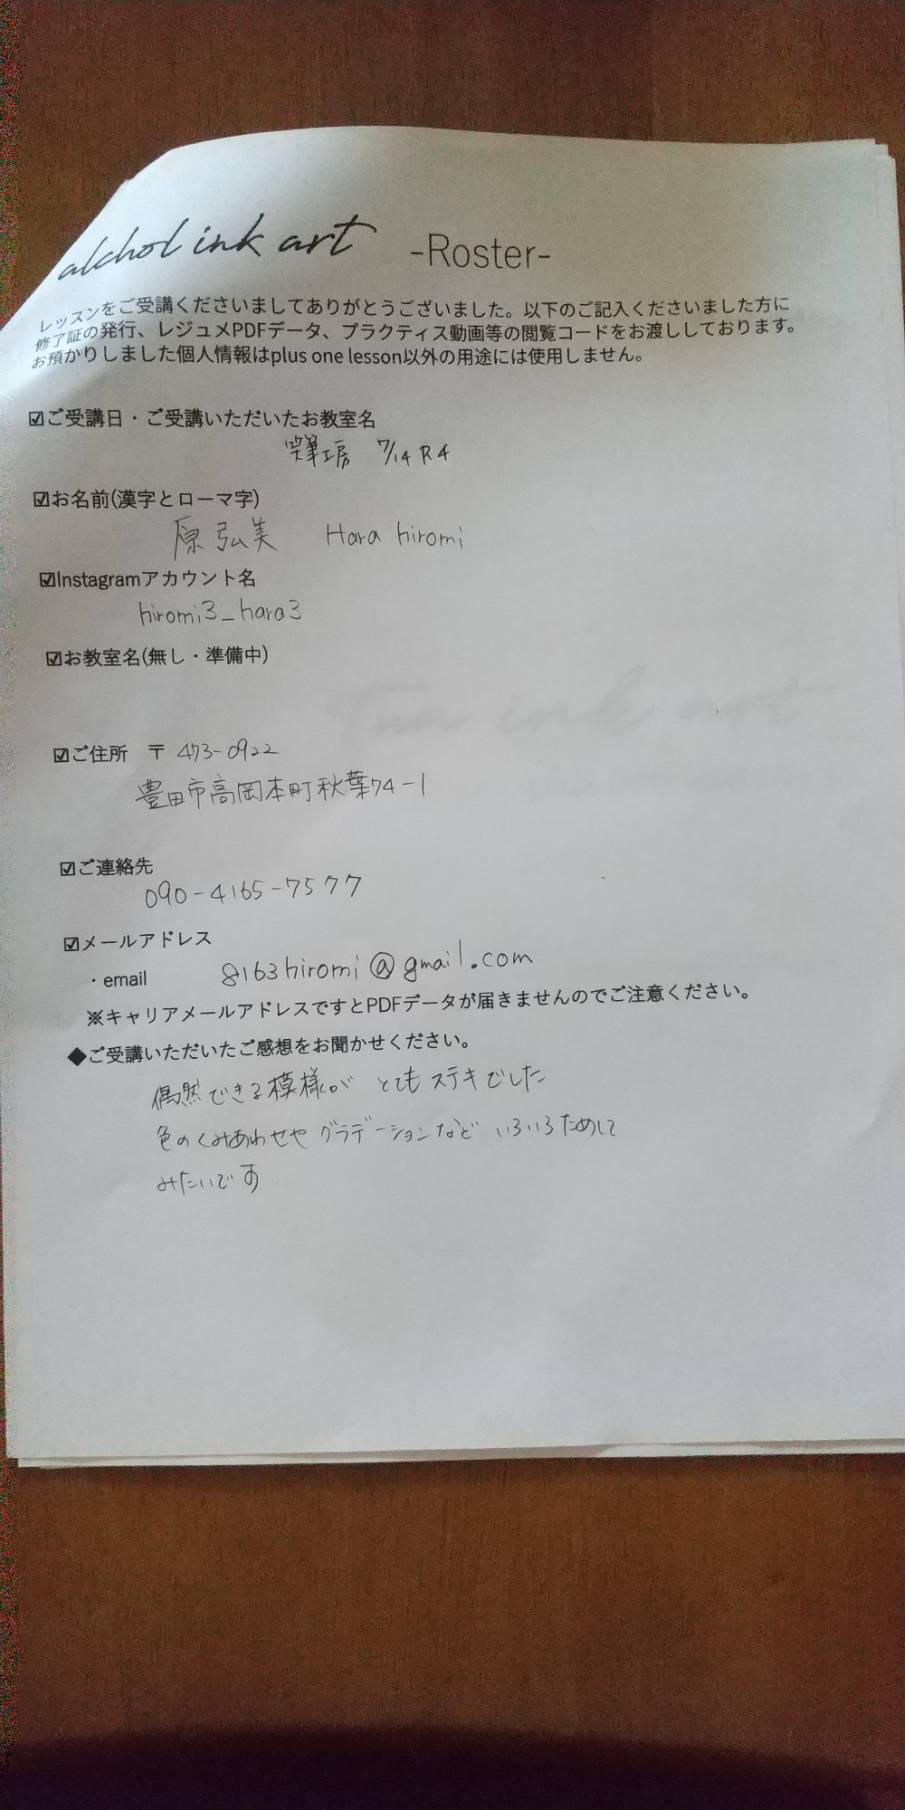 alchol ink art -Roster-
レッスンをご受講くださいましてありがとうございました。以下のご記入くださいました方に
修了証の発行、レジュメPDFデータ、プラクティス動画等の閲覧コードをお渡ししております。
お預かりしました個人情報はplus one lesson以外の用途には使用しません。
☑ご受講日・ご受講いただいたお教室名
工房 7/14 R4
☑お名前(漢字とローマ字)
原弘美 Hara hiromi
☑Instagramアカウント名
hiromi3_hara3
☑お教室名(無し・準備中)
☑ご住所 〒 473-0922
豊田市高岡本町秋葉74-1
☑ご連絡先
090-4165-7577
☑メールアドレス
・email 8163hiromi@gmail.com
※キャリアメールアドレスですとPDFデータが届きませんのでご注意ください。
◆ご受講いただいたご感想をお聞かせください。
偶然できる模様が とてもステキでした
色のくみあわせや グラデーションなど いろいろためして
みたいです